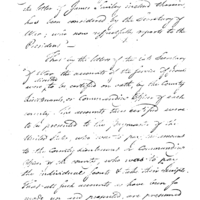 the letter of James Findley inclosed therein,
has been considered by the Secretary of
War, who now respectfully reports to the
President
That by the letter of the late Secretary
of War, the accounts of the service of
were to be certified on oath, by the County
Lieutenant, or Commanding Officer of each
county. The accounts thus certified were
to be presented to the Paymaster of the
United States, who was to pay the amount
to the County Lieutenant or Commanding
officer of the county, who was to pay
the individuals, &amp; take their receipts.
That all such accounts as have been so
made up and prepared are presumed